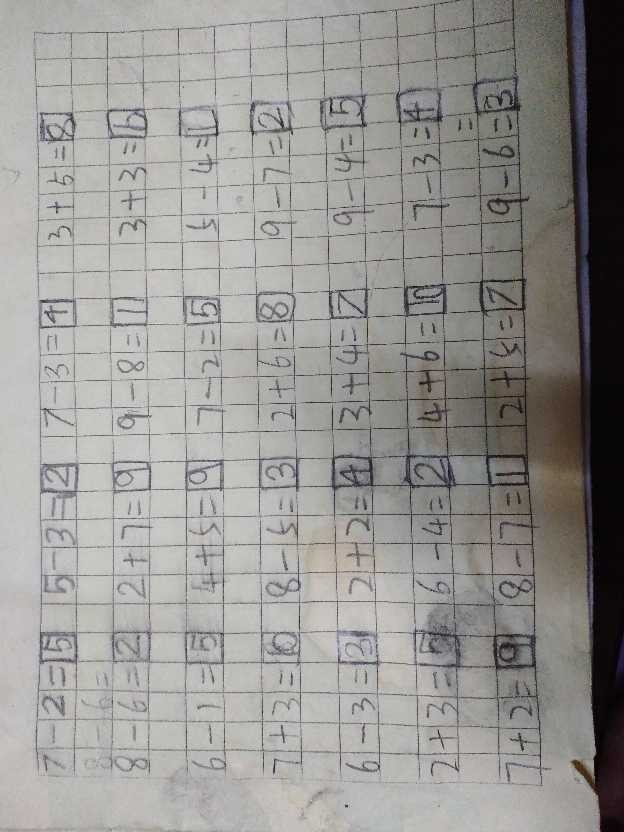 7-2=5 5-3=2 7-3=4 3+5=8
8-6=
8-6=2 2+7=9 9-8=1 3+3=6
6-1=5 4+5=9 7-2=5 5-4=1
7+3=10 8-5=3 2+6=8 9-7=2
6-3=3 2+2=4 3+4=7 9-4=5
2+3=5 6-4=2 4+6=10 7-3=4
=
7+2=9 8-7=1 2+5=7 9-6=3